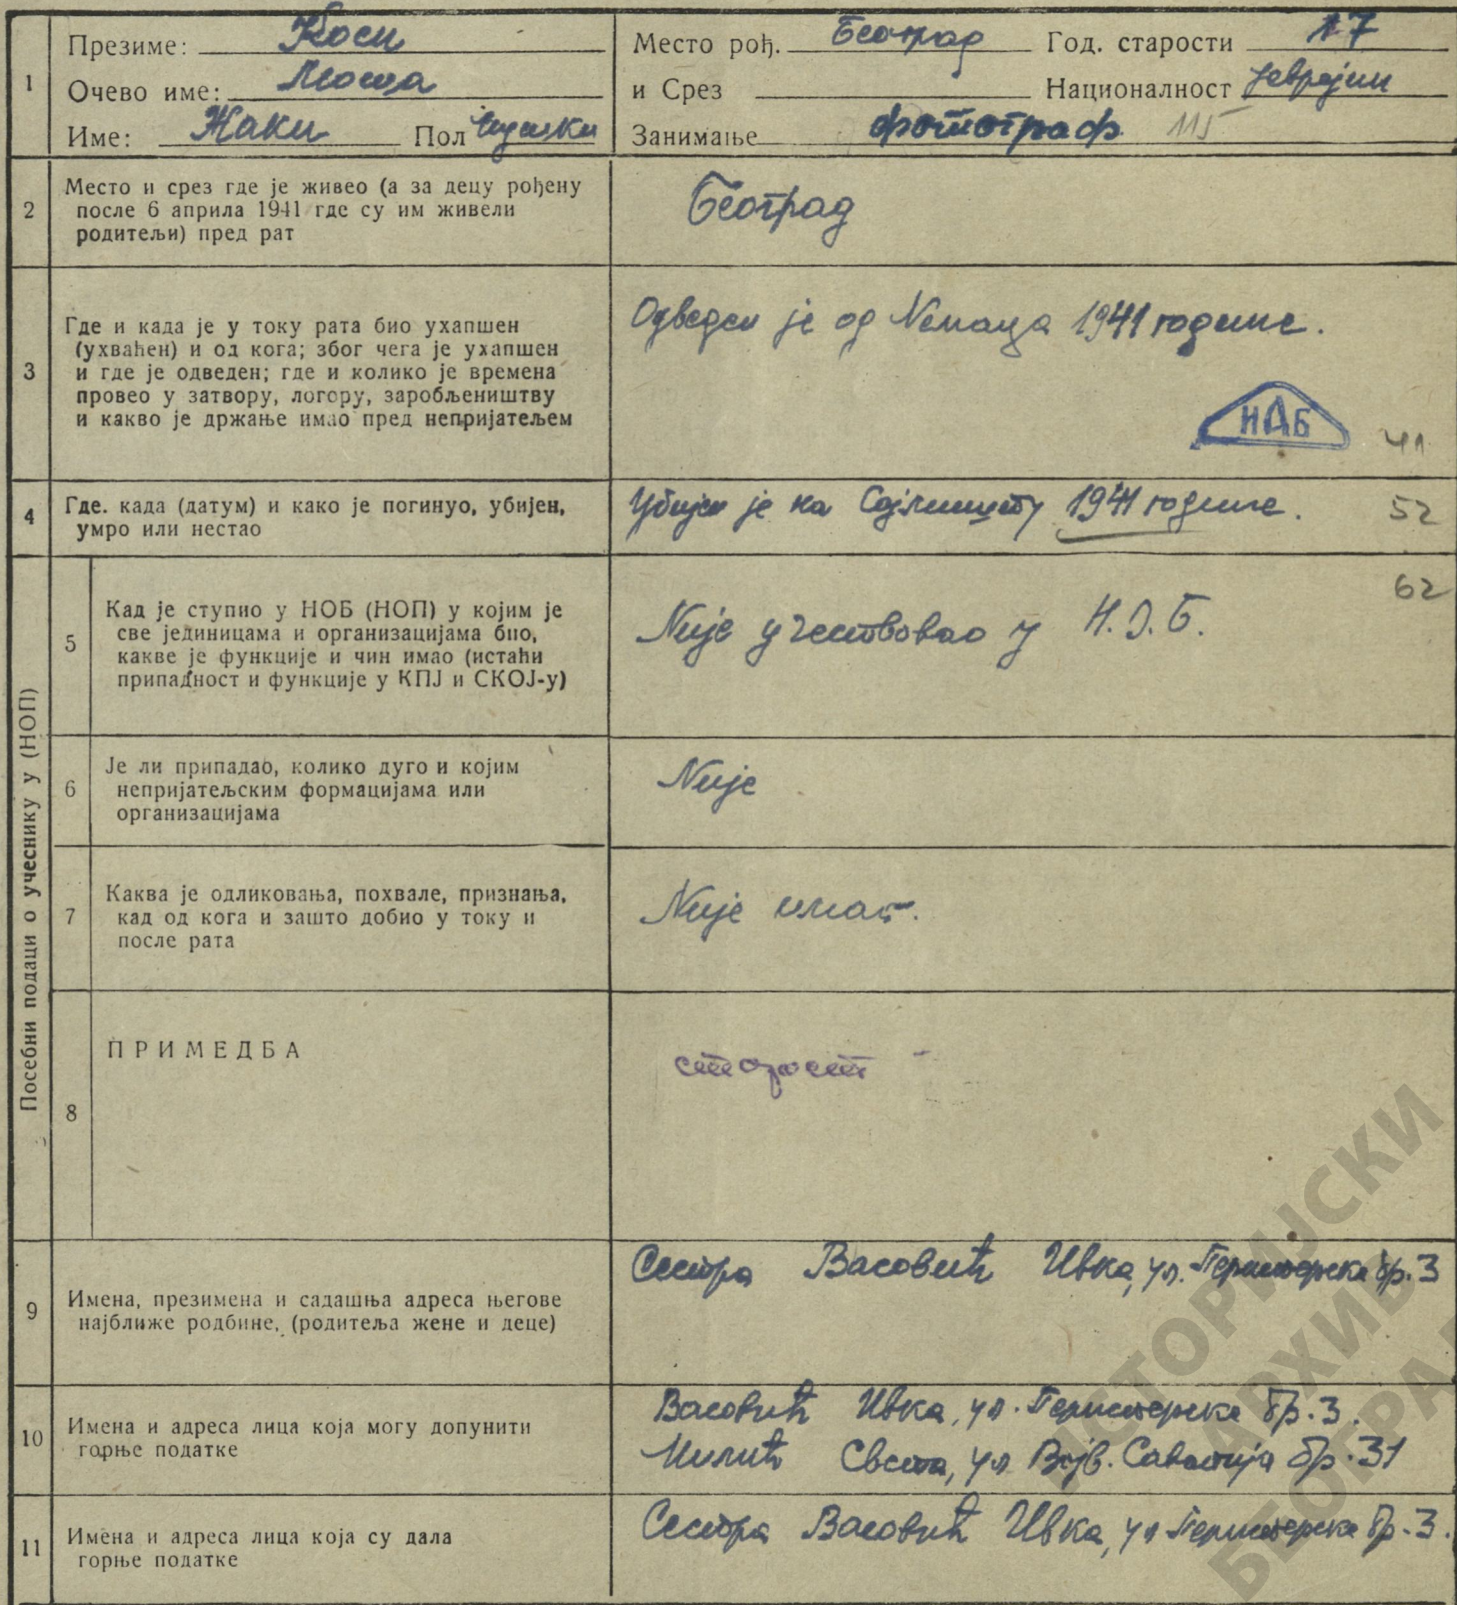 1
Презиме: Коен
Место рођ. Београд Год. старости 17
Очево име: Моша
и Срез Националност Јеврејин
Име: Жаки Пол мушки
Занимање фотограф 115
2
Место и срез где је живео (а за децу рођену
после 6 априла 1941 где су им живели
родитељи) пред рат
Београд
3
Где и када је у току рата био ухапшен
(ухваћен) и од кога; због чега је ухапшен
и где је одведен; где и колико је времена
провео у затвору, логору, заробљеништву
и какво је држање имао пред непријатељем
Одведен је од Немаца 1941 године.
НАБ
41
4
Где. када (датум) и како је погинуо, убијен,
умро или нестао
Убијен је на Сајмишту 1941 године. 52
Посебни подаци о учеснику у (НОП)
5
Кад је ступио у НОБ (НОП) у којим је
све јединицама и организацијама био,
какве је функције и чин имао (истаћи
припадност и функције у КПЈ и СКОЈ-у)
62
Није учествовао у Н.О.Б.
6
Је ли припадао, колико дуго и којим
непријатељским формацијама или
организацијама
Није
7
Каква је одликовања, похвале, признања,
кад од кога и зашто добио у току и
после рата
Није имао.
8
ПРИМЕДБА
9
Имена, презимена и садашња адреса његове
најближе родбине, (родитеља жене и деце)
Сестра Васовић Ивка, ул. Перистерска бр. 3
10
Имена и адреса лица која могу допунити
горње податке
Васовић Ивка, ул. Перистерска бр. 3.
Милић Света, ул Војв. Саватија бр. 31
11
Имена и адреса лица која су дала
горње податке
Сестра Васовић Ивка, ул Перистерска бр. 3.
ИСТОРИЈСКИ
АРХИВ